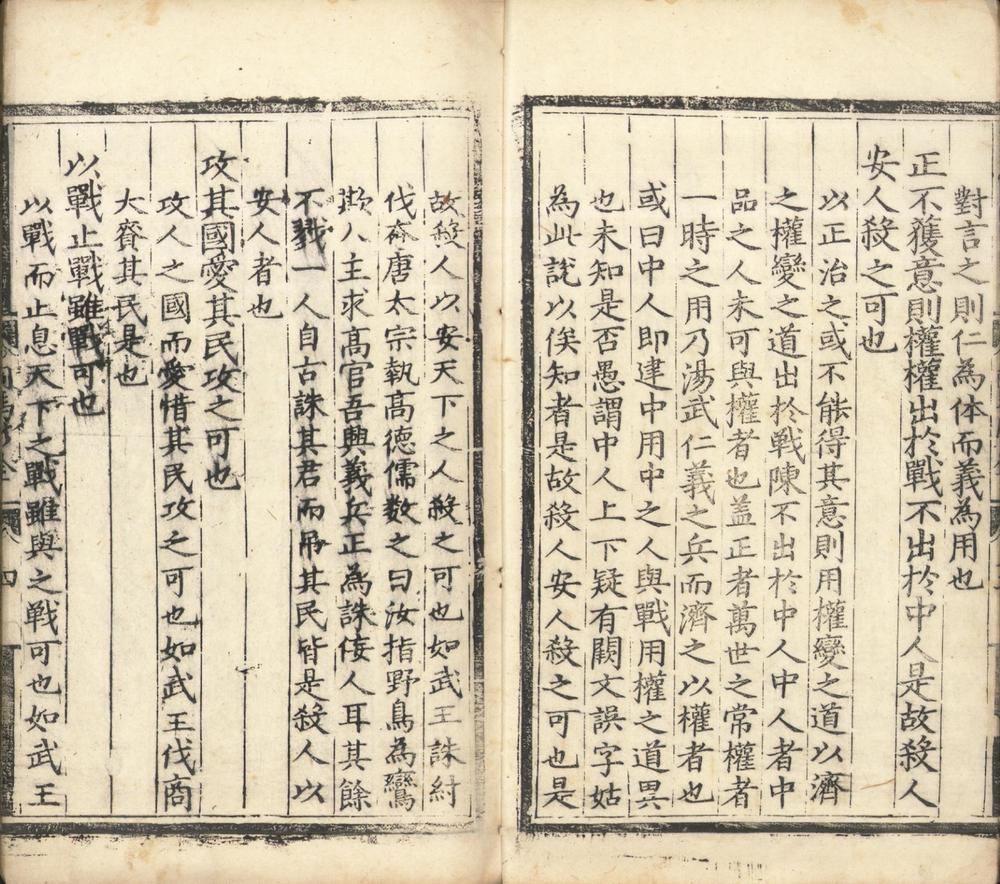 對言之則仁為体而義為用也
正不獲意則權權出於戰不出於中人是故殺人
安人殺之可也
以正治之或不能得其意則用權變之道以濟
之權變之道出於戰陳不出於中人中人者中
品之人未可與權者也盖正者萬世之常權者
一時之用乃湯武仁義之兵而濟之以權者也
或曰中人即建中用中之人與戰用權之道異
也未知是否愚謂中人上下疑有闕文誤字姑
為此說以俟知者是故殺人安人殺之可也是
故殺人以安天下之人殺之可也如武王誅紂
伐奔唐太宗執高德儒数之曰汝指野鳥為鸞
欺人主求高官吾興義兵正為誅侫人耳其餘
不戮一人自古誅其君而吊其民皆是殺人以
安人者也
攻其國愛其民攻之可也
攻人之國而愛惜其民攻之可也如武王伐商
大賚其民是也
以戰止戰雖戰可也
以戰而止息天下之戰雖與之战可也如武王
四